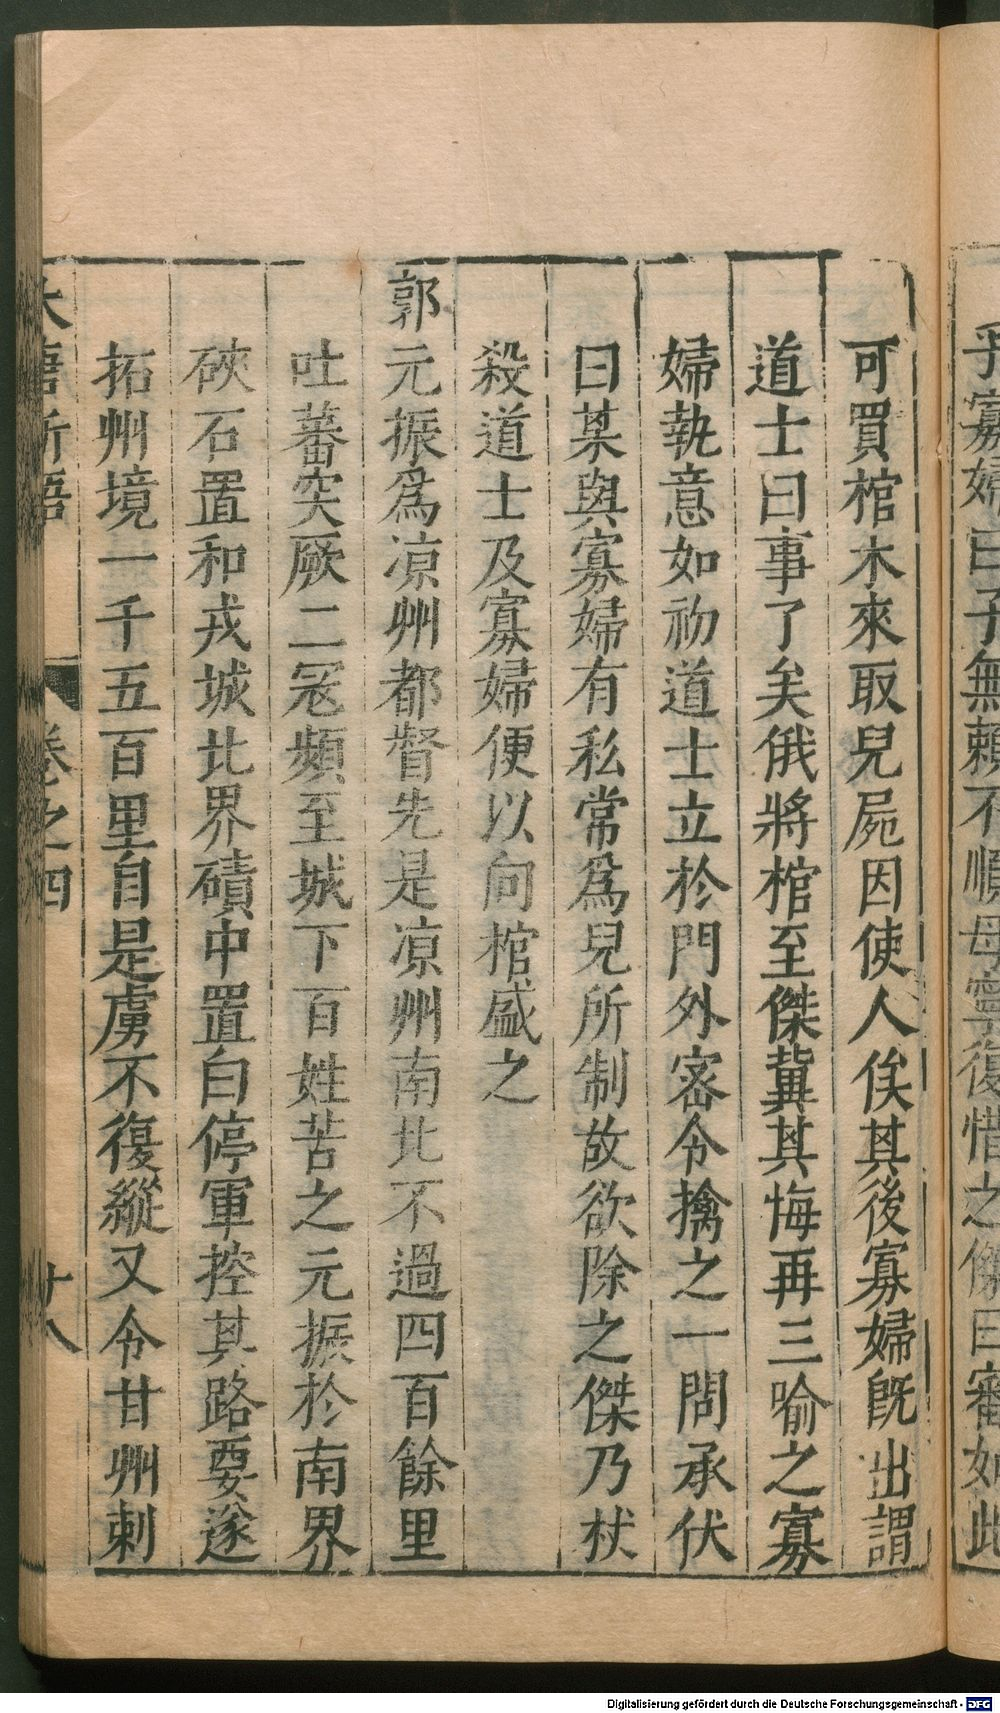 乎寡婦曰子無賴不順母寧復惜之傑曰審如此
可買棺木來取兒屍因使人俟其後寡婦旣出謂
道士曰事了矣俄將棺至傑冀其悔再三喻之寡
婦執意如初道士立於門外密令擒之一問承伏
曰某與寡婦有私常爲兒所制故欲除之傑乃杖
殺道士及寡婦便以向棺盛之
郭元振爲凉州都督先是凉州南北不過四百餘里
吐蕃突厥二冦頻至城下百姓苦之元振於南界
硤石置和戎城北界磧中置白停軍控其路要遂
拓州境一千五百里自是虜不復縱又令甘州刺
大唐新語 卷之四 廿八
Digitalisierung gefördert durch die Deutsche Forschungsgemeinschaft - DFG